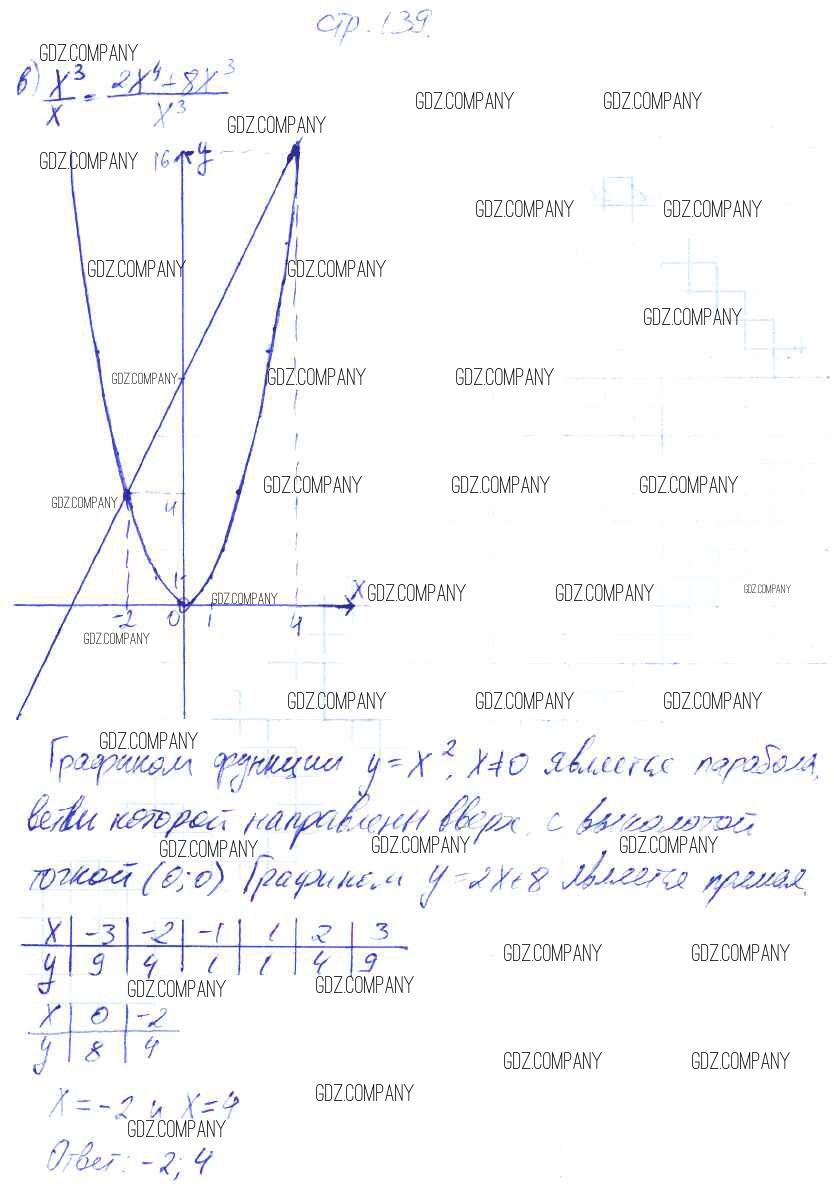 стр. 139.
GDZ.COMPANY
в) x³/x = (2x⁴+8x³)/x³
GDZ.COMPANY GDZ.COMPANY
GDZ.COMPANY
GDZ.COMPANY 16 y
GDZ.COMPANY GDZ.COMPANY
GDZ.COMPANY GDZ.COMPANY
GDZ.COMPANY
GDZ.COMPANY GDZ.COMPANY GDZ.COMPANY
GDZ.COMPANY GDZ.COMPANY GDZ.COMPANY
GDZ.COMPANY 4
1 x GDZ.COMPANY GDZ.COMPANY GDZ.COMPANY
GDZ.COMPANY
-2 0 1 4
GDZ.COMPANY
GDZ.COMPANY GDZ.COMPANY GDZ.COMPANY
GDZ.COMPANY
Графиком функции y = x², x≠0 является парабола,
ветви которой направлены вверх, с выколотой
GDZ.COMPANY GDZ.COMPANY GDZ.COMPANY
точкой (0;0) Графиком y=2x+8 является прямая.
x -3 -2 -1 1 2 3
y 9 4 1 1 4 9
GDZ.COMPANY GDZ.COMPANY
GDZ.COMPANY GDZ.COMPANY
x 0 -2
y 8 4
GDZ.COMPANY GDZ.COMPANY
GDZ.COMPANY
x = -2 и x = 4
GDZ.COMPANY
Ответ: -2; 4